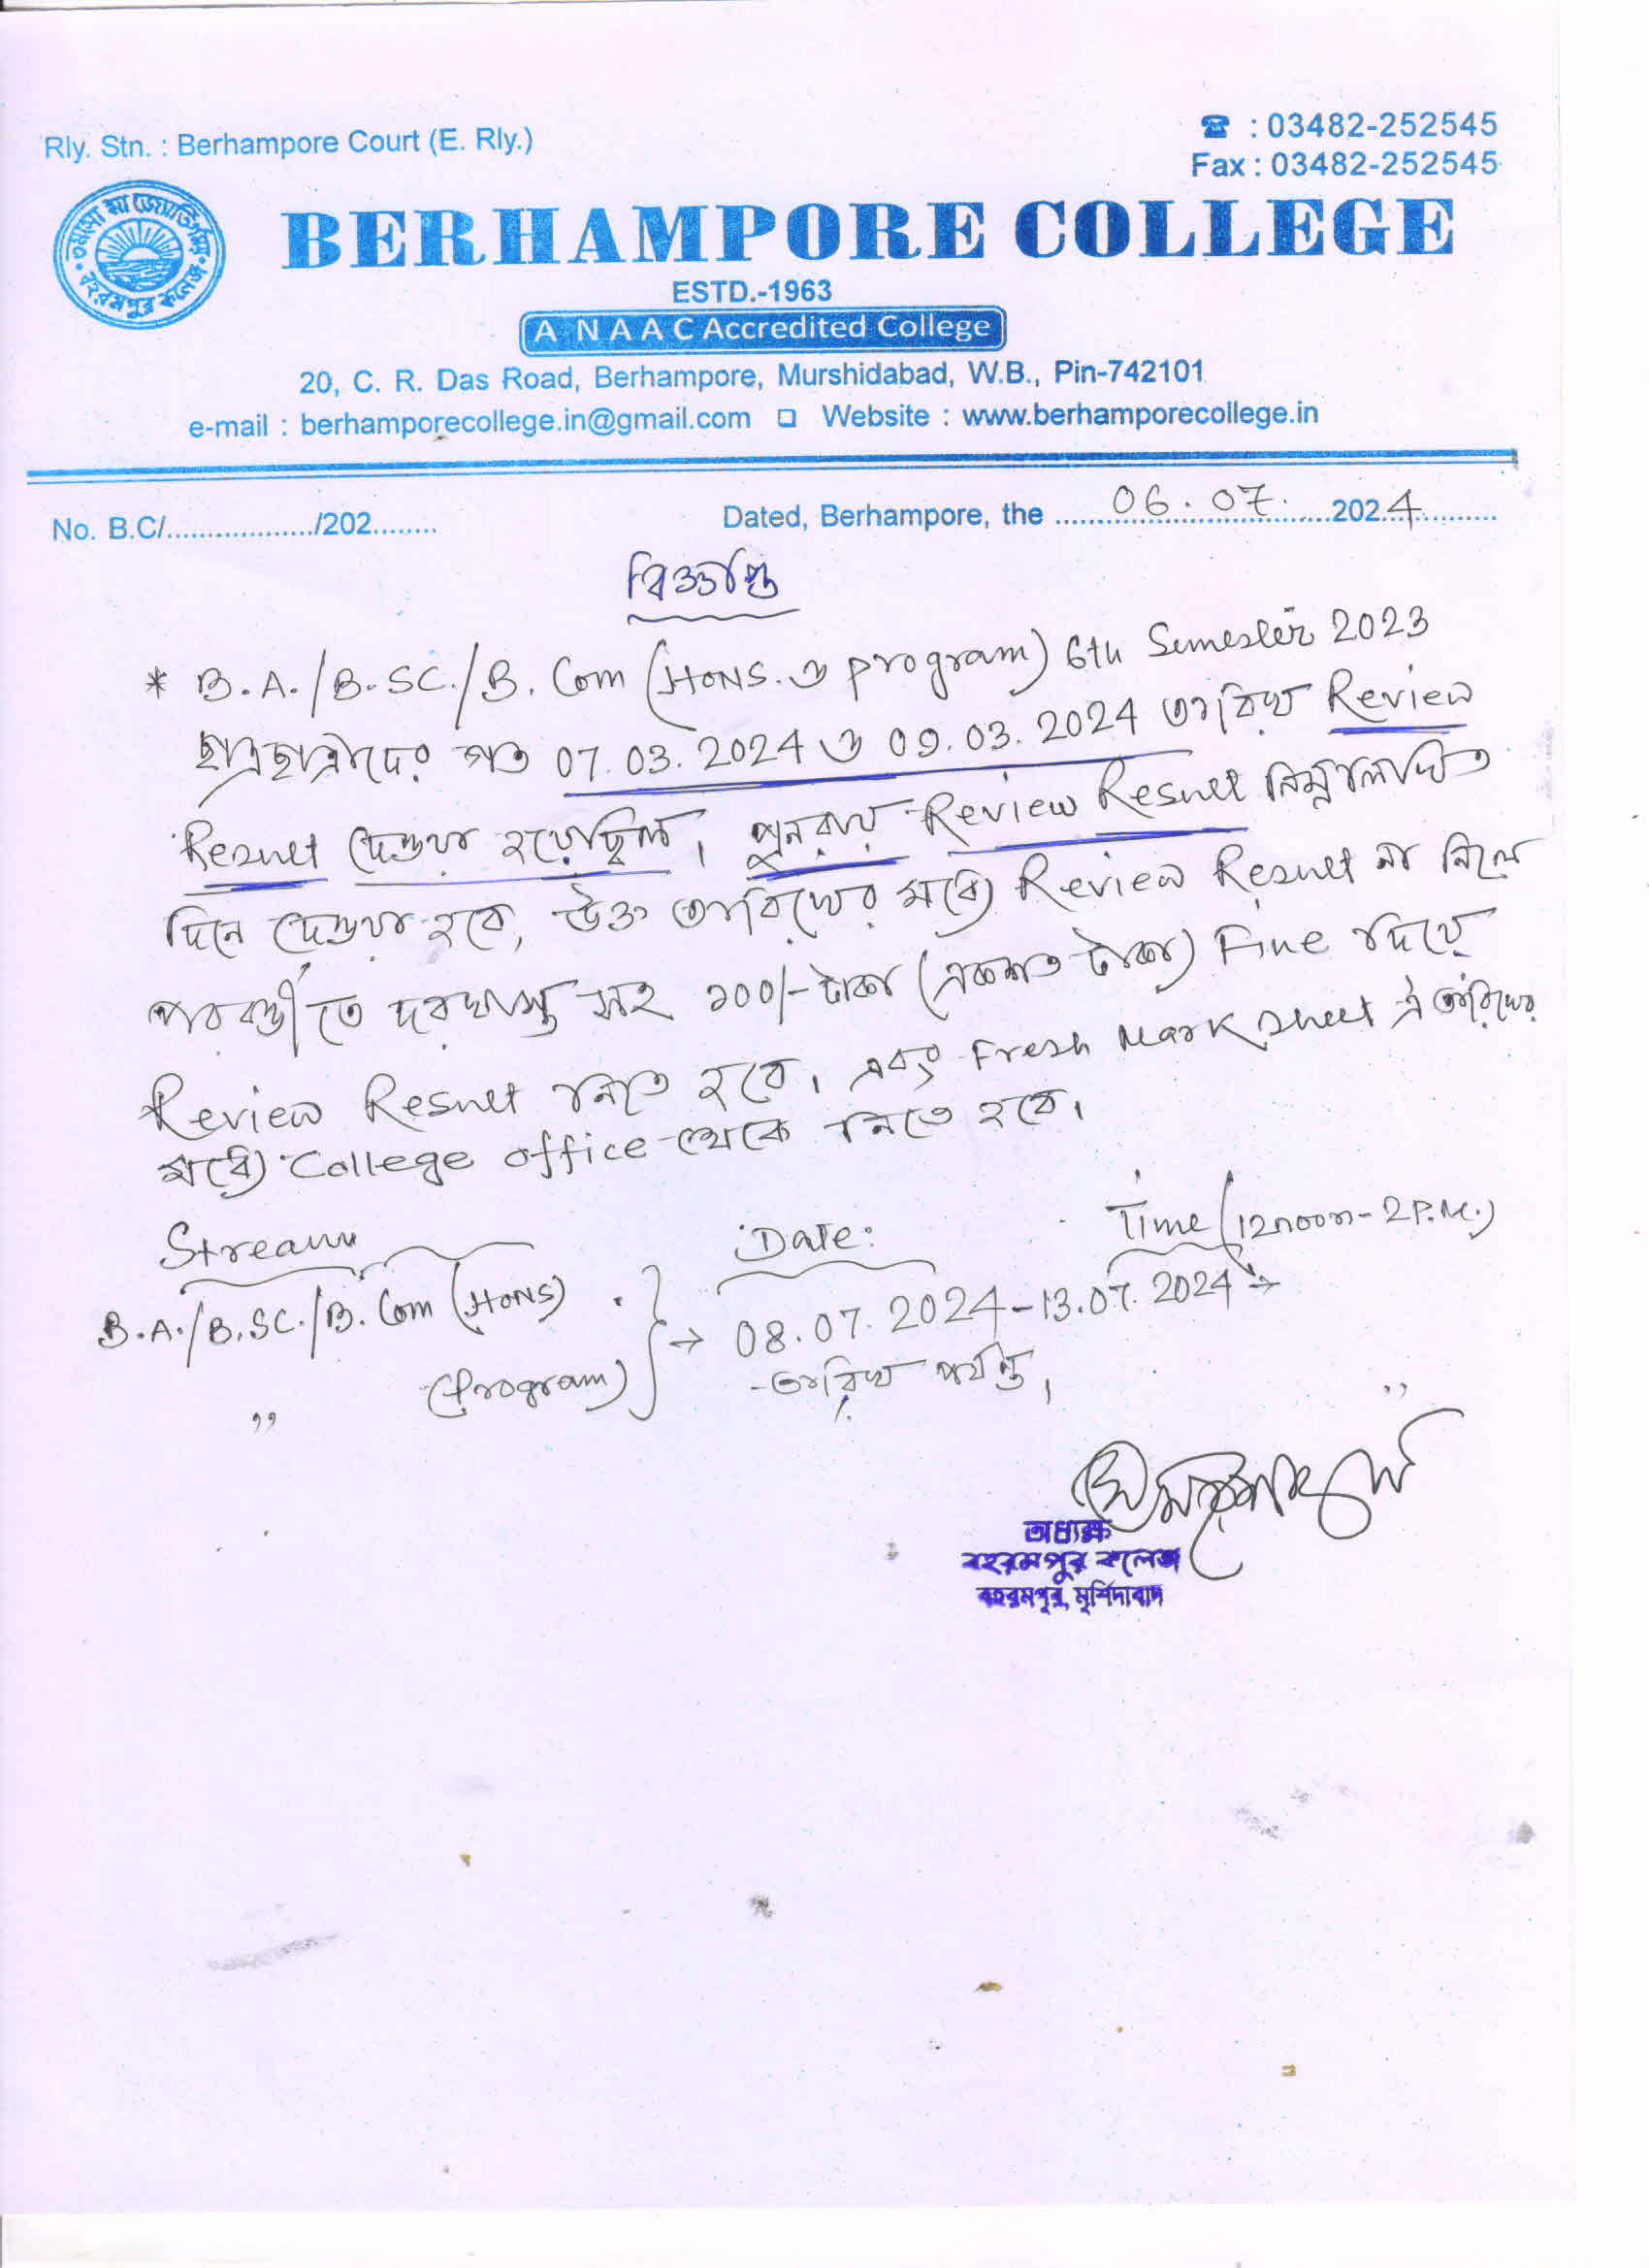 Rly. Stn. : Berhampore Court (E. Rly.)
☎ : 03482-252545
Fax : 03482-252545
তমসো মা জ্যোতির্গময়
বহরমপুর কলেজ
BERHAMPORE COLLEGE
ESTD.-1963
A NAAC Accredited College
20, C. R. Das Road, Berhampore, Murshidabad, W.B., Pin-742101
e-mail : berhamporecollege.in@gmail.com ❑ Website : www.berhamporecollege.in
No. B.C/................../202........ Dated, Berhampore, the ......06.07.......2024..........
বিজ্ঞপ্তি
* B.A./B.SC./B. Com (HONS. ও program) 6th Semester 2023
ছাত্রছাত্রীদের গত 07.03.2024 ও 09.03.2024 তারিখ Review
Result দেওয়া হয়েছিল। পুনরায় Review Result নিম্নলিখিত
দিনে দেওয়া হবে, উক্ত তারিখের মধ্যে Review Result না নিলে
পরবর্তীতে দরখাস্ত সহ ১০০/- টাকা (একশত টাকা) Fine দিয়ে
Review Result নিতে হবে। এবং Fresh Mark sheet ঐ তারিখের
মধ্যে College office থেকে নিতে হবে।
Stream Date: Time (12noon-2P.M.)
B.A./B.SC./B. Com (HONS) } → 08.07.2024-13.07.2024 →
" (Program) তারিখ পর্যন্ত। "
অধ্যক্ষ
বহরমপুর কলেজ
বহরমপুর, মুর্শিদাবাদ